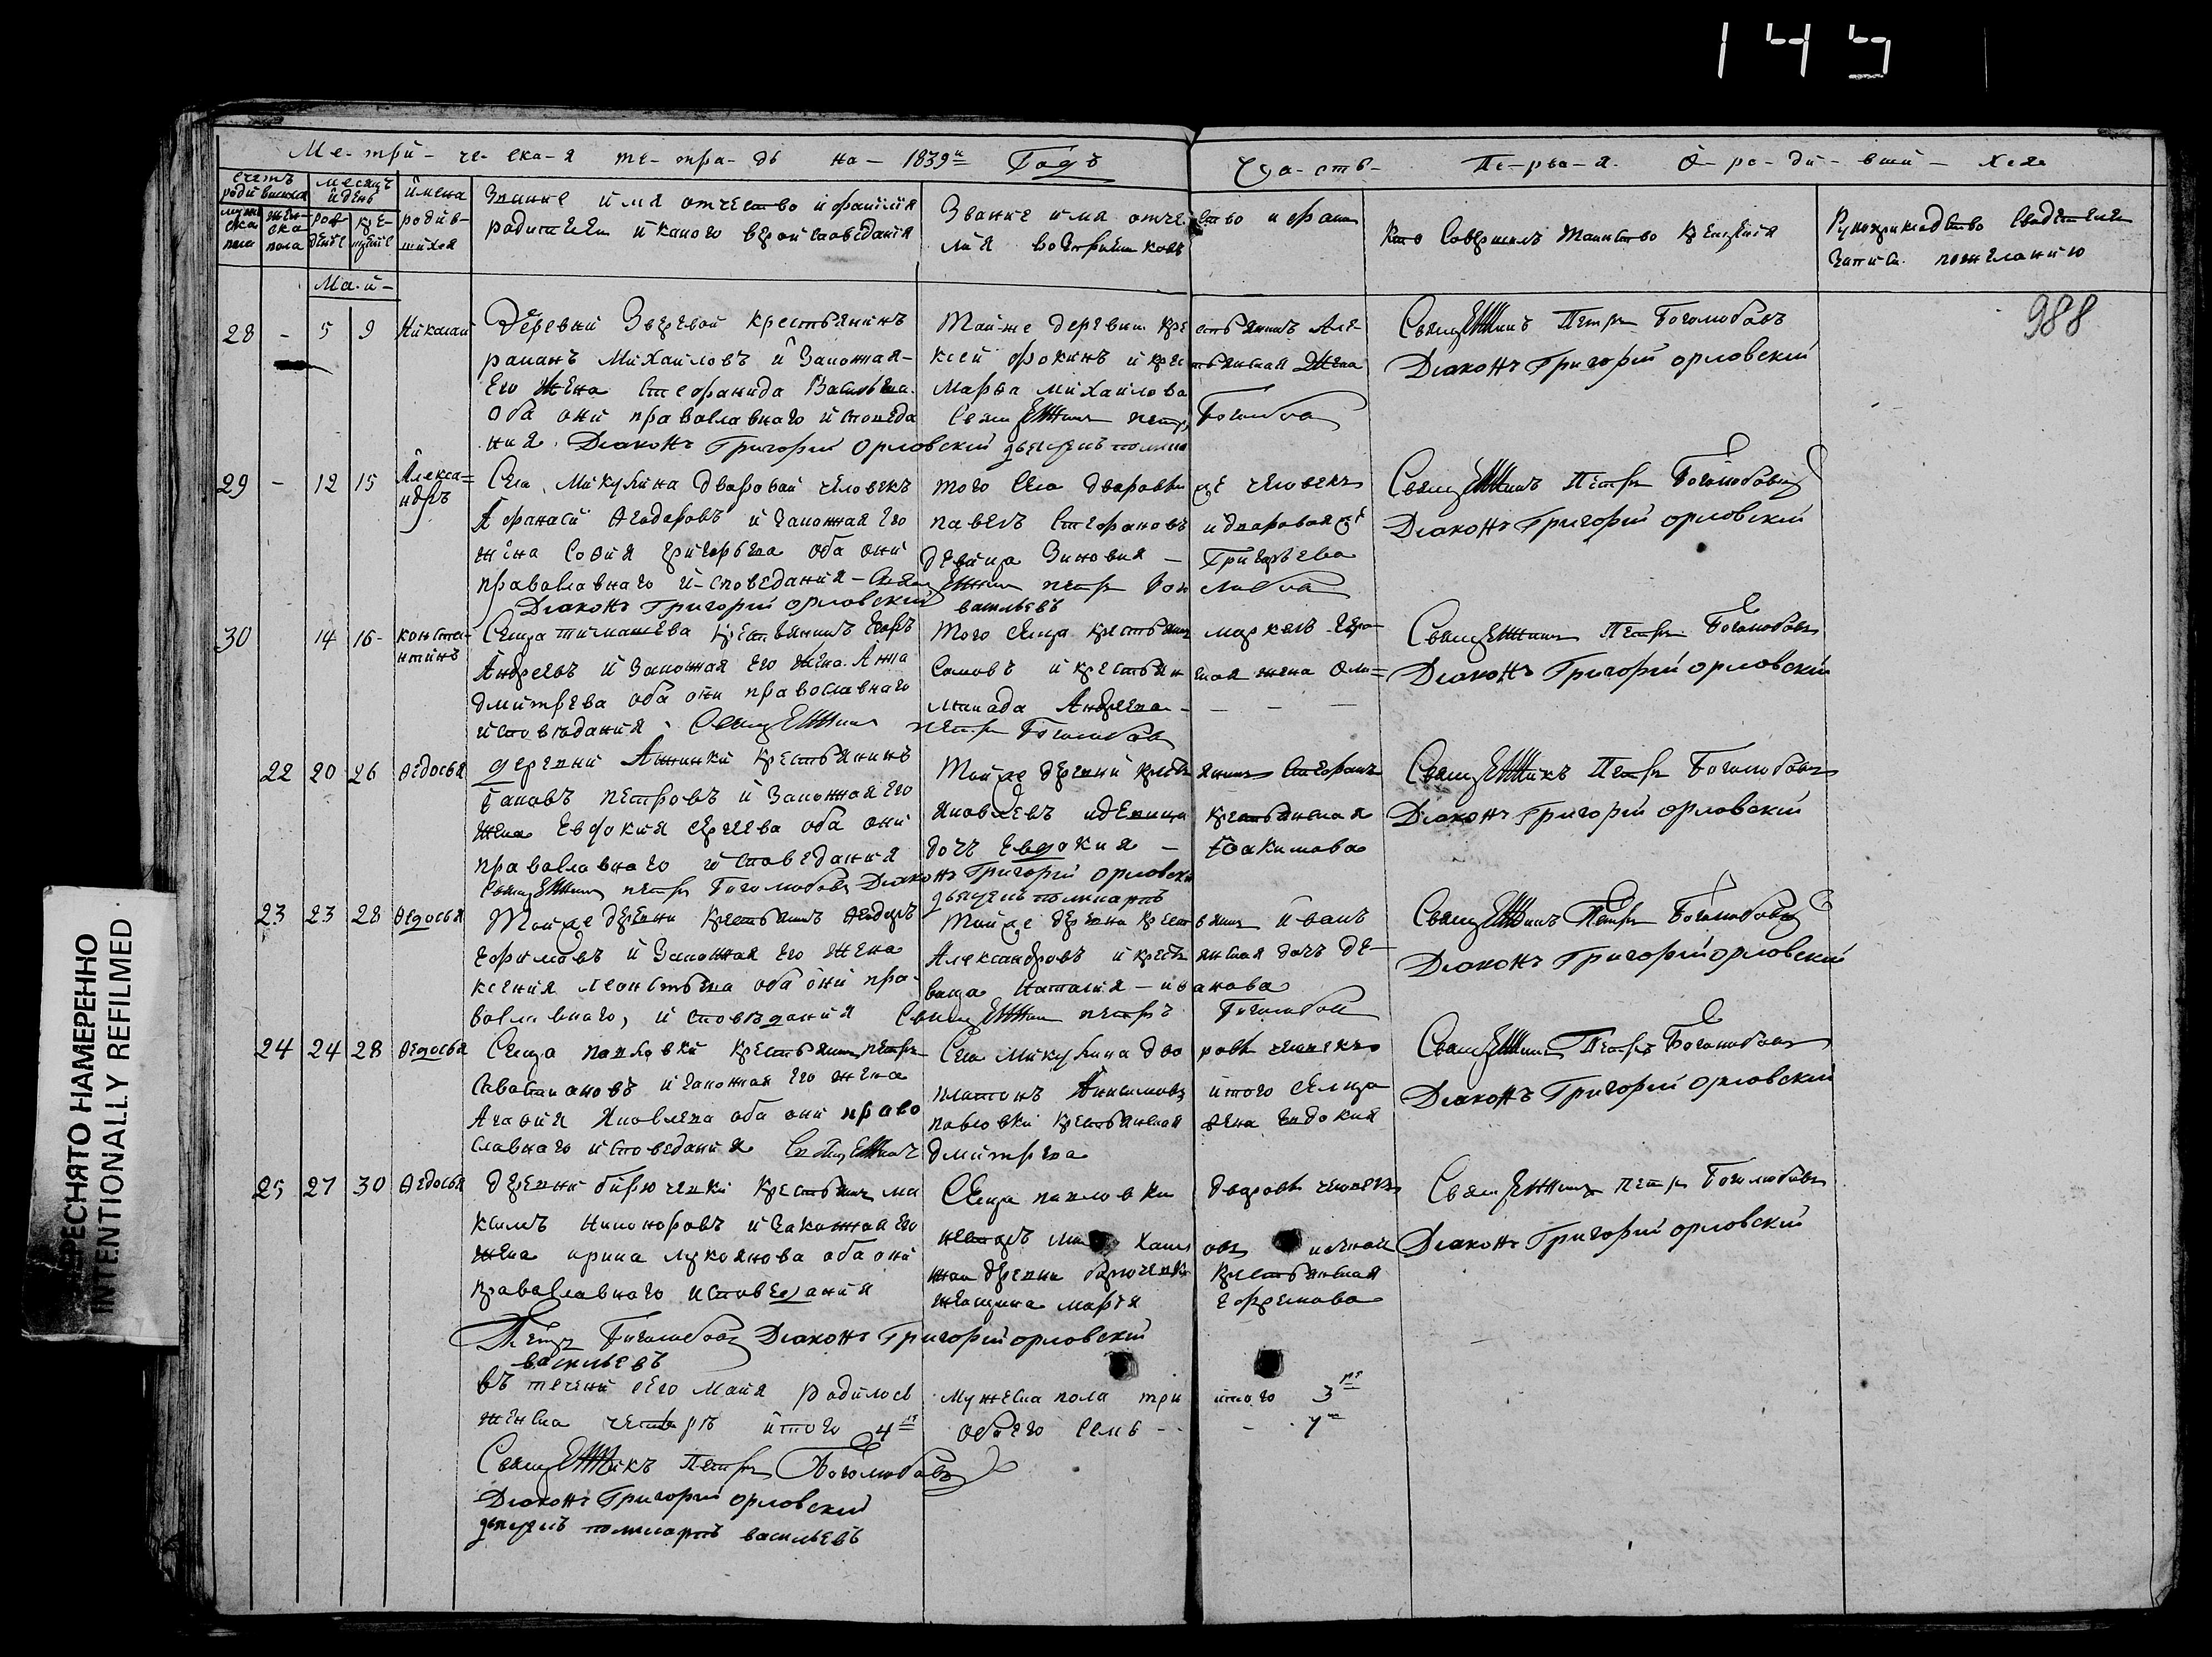 145
Ме-три-че-ска-я те-тра-дь на-1839й Годъ Ча-сть- Пе-рва-я. О-ро-ди-вши-хся
счетъ родившихся
месяцъ и день
имена родив-шихся
Звание имя отчество и фамилия
родителей и какого вероисповедания
Звание имя отчество и фами
лия восприемиковъ
Кто совершилъ таинство крещения
Рукоприкладство свидетелей
записи по желанию
муж ска пола
жен-ска пола
рож дение
кре-щение
Ма-й-
988
28 - 5 9 Николай Деревни Зверевой крестьянинъ
раманъ Михайловъ и Законная-
Его Жена Стефанида Васильева.
Оба они православнаго исповеда
ния. Диаконъ Григорий Орловский
Той же деревни крестьянинъ Але
ксей фокинъ и крестьянская Жена
Марѳа михайлова
Священникъ петръ Боголюбовъ
Священникъ Петръ Боголюбовъ
Диаконъ Григорий орловский
29 - 12 15 Алекса=ндръ Села Микулина дваровой человекъ
Афанасй Ѳеодоровъ и законная Его
жена Соѳия григорьева оба они
православнаго и-споведания-
Диаконъ Григорий орловский
того села дваровы
павелъ Стефановъ и дваровая
девица Зиновия - Григорьева
васильевъ
Священникъ Петръ Боголюбовъ
Диаконъ Григорий орловский
30 14 16- конста-нтинъ Сельца крестьянинъ
Андреевъ и Законная Его жена Анна
дмитрева оба они православнаго
исповѣдания. Священникъ петръ Боголюбовъ
того сельца крестьянинъ маркелъ Гера-
симовъ и крестьянская жена Оли=
мпиада Андреева - - - -
Священникъ Петръ Боголюбовъ
Диаконъ Григорий орловский
22 20 26 Ѳедосья деревни Аннинки крестьянинъ
петровъ и Законная Его
жена Евдокия сергеева оба они
православнаго исповедания
Священникъ петръ Боголюбовъ Диаконъ Григорий орловский
Той же деревни крестьянинъ Стефанъ
яковлевъ и девица крестьянская
дочь Евдокия - Иоакимова
Священникъ Петръ Боголюбовъ
Диаконъ Григорий орловский
23 23 28 Ѳедосья Той же деревни крестьянинъ Ѳеодоръ
ефимовъ и Законная Его Жена
ксения леоньтьева оба они пра-
вославнаго, исповѣдания Священникъ петръ Боголюбовъ
Той же деревни крестьянинъ иванъ
Александровъ и крестьянская дочь де-
вица Наталия - иванова
Священникъ Петръ Боголюбовъ
Диаконъ Григорий орловский
24 24 28 Ѳедосья Сельца павловки крестьянинъ петръ
Савастиановъ и законная Его жена
Агаѳия Яковлева оба они право
славнаго исповедания Священникъ
Села микулина дворовы человекъ
платонъ Анисимовъ и того сельца
павловки крестьянская жена Евдокия
дмитрева
Священникъ Петръ Боголюбовъ
Диаконъ Григорий орловский
25 27 30 Ѳедосья деревни бирючевки крестьянинъ ма
ксимъ Никоноровъ и Законная Его
жена ирина лукоянова оба они
православнаго исповедания
Петръ Боголюбовъ Диаконъ Григорий орловский
васильевъ
Сельца павловки дваровы человекъ
деревни бирючевки крестьянская
женщина марѳа ефремова
Священникъ петръ Боголюбовъ
Диаконъ Григорий орловский
въ течени сего Майя родилось мужеска пола три итого 3
женска четыре итого 4 обоего семь - - 7
Священникъ Петръ Боголюбовъ
Диаконъ Григорий орловский
пономарь васильевъ
ПЕРЕСНЯТО НАМЕРЕННО
INTENTIONALLY REFILMED